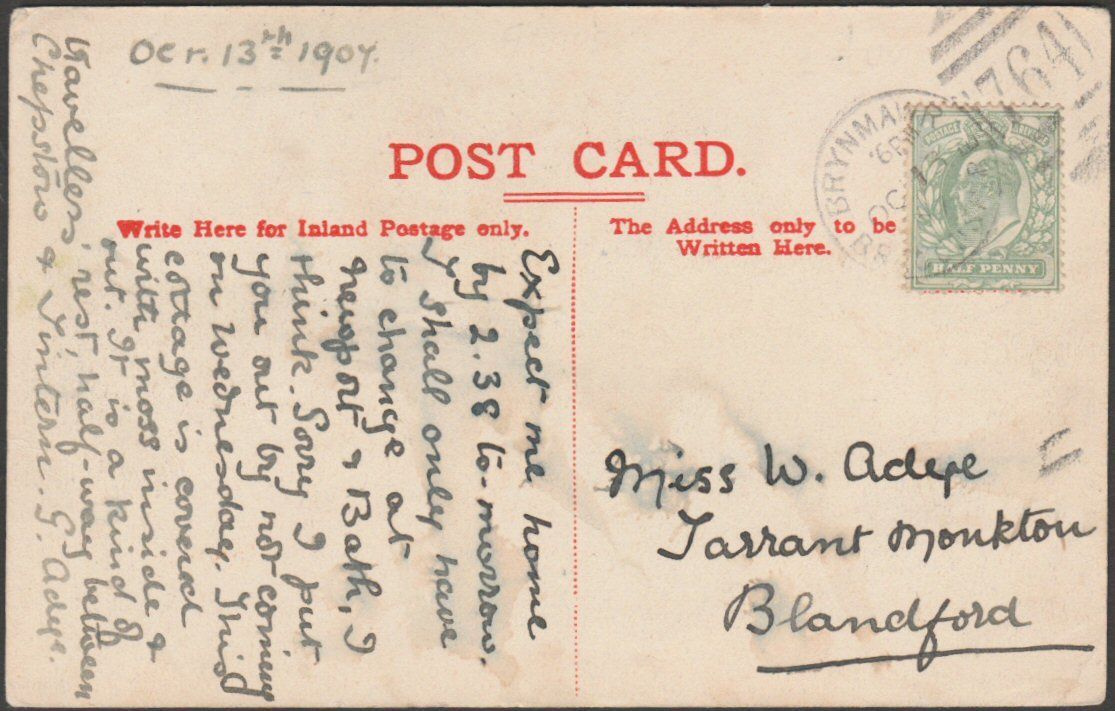 Oct. 13th 1907.
POST CARD.
Write Here for Inland Postage only.
The Address only to be
Written Here.
BRYNMAWR
OC 13
764
POSTAGE
HALF PENNY
Expect me home
by 2.38 to-morrow.
I shall only have
to change at
Newport & Bath, I
think. Sorry I put
you out by not coming
on Wednesday. This
cottage is covered
with moss inside &
out. It is a kind of
travellers' rest, half-way between
Chepstow & Tintern. G. Adye.
Miss W. Adye
Tarrant Monkton
Blandford